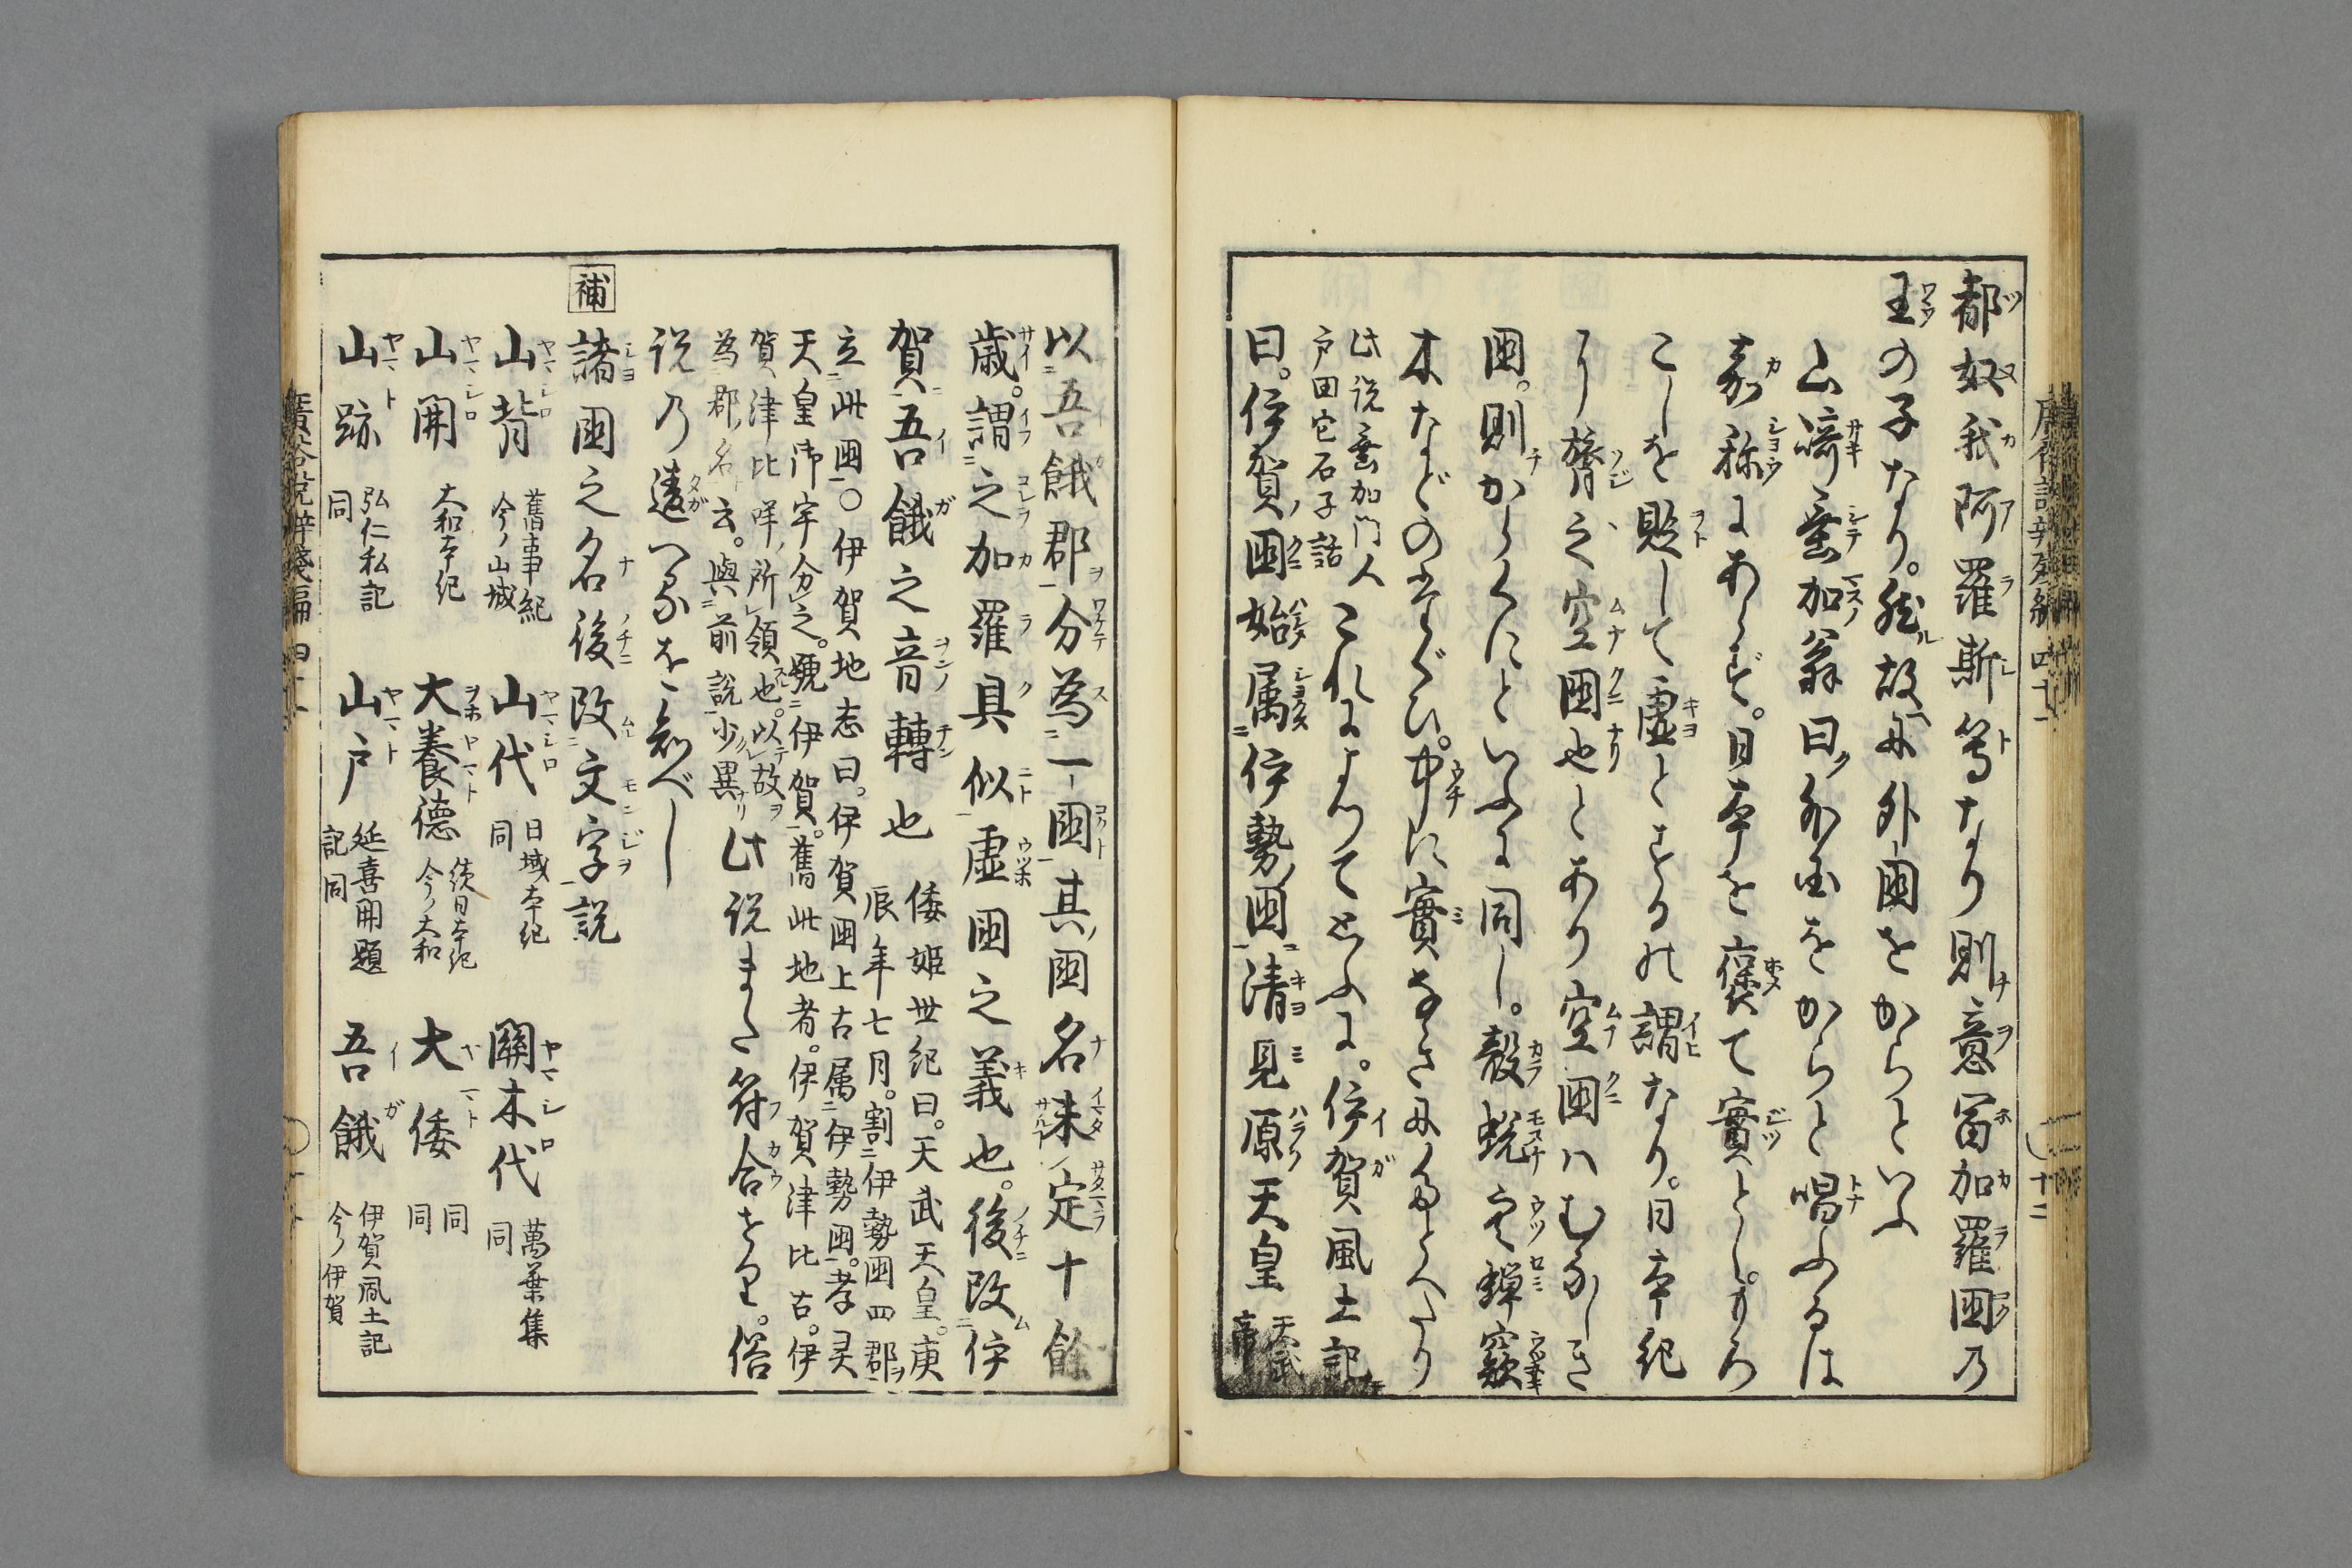 都奴我阿羅斯等なり則意冨加羅國乃
王の子なり。然故に外國をからといふ
山﨑垂加翁曰外国をからと唱ふるは
嘉称にあらず。日本を褒て實とし。もろ
こしを貶して虚とするの謂なり。日本紀
に膂之空國也とあり空國ハむなしき
國。則からくにといふに同し。殻蛻空蟬窾
木などのたぐひ。中に實なきにたとへたり
此说垂加門人
戸田宅石子話
これによつて思ふに。伊賀風土記
曰。伊賀國始属伊勢國清見原天皇
天武
帝
以吾餓郡分為一國其國名未定十餘
歳。謂之加羅具似虚國之義也。後改伊
賀吾餓之音轉也
倭姫世紀曰。天武天皇。庚
辰年七月。割伊勢國四郡
立此國○伊賀地志曰。伊賀國上古属伊勢國。孝灵
天皇御宇分之。號伊賀。舊此地者。伊賀津比古。伊
賀津比咩所領也。以故
為郡名云。與前説少異
此説また符合せり。俗
说乃違へるをしるべし
補 諸國之名後改文字説
山背 舊事紀 今ノ山城 山代 日域本紀 同 關木代 萬葉集 同
山開 大和本紀 大養德 続日本紀 今ノ大和 大倭 同 同
山跡 弘仁私記 同 山戸 延喜開題 記同 吾餓 伊賀風土記 今ノ伊賀